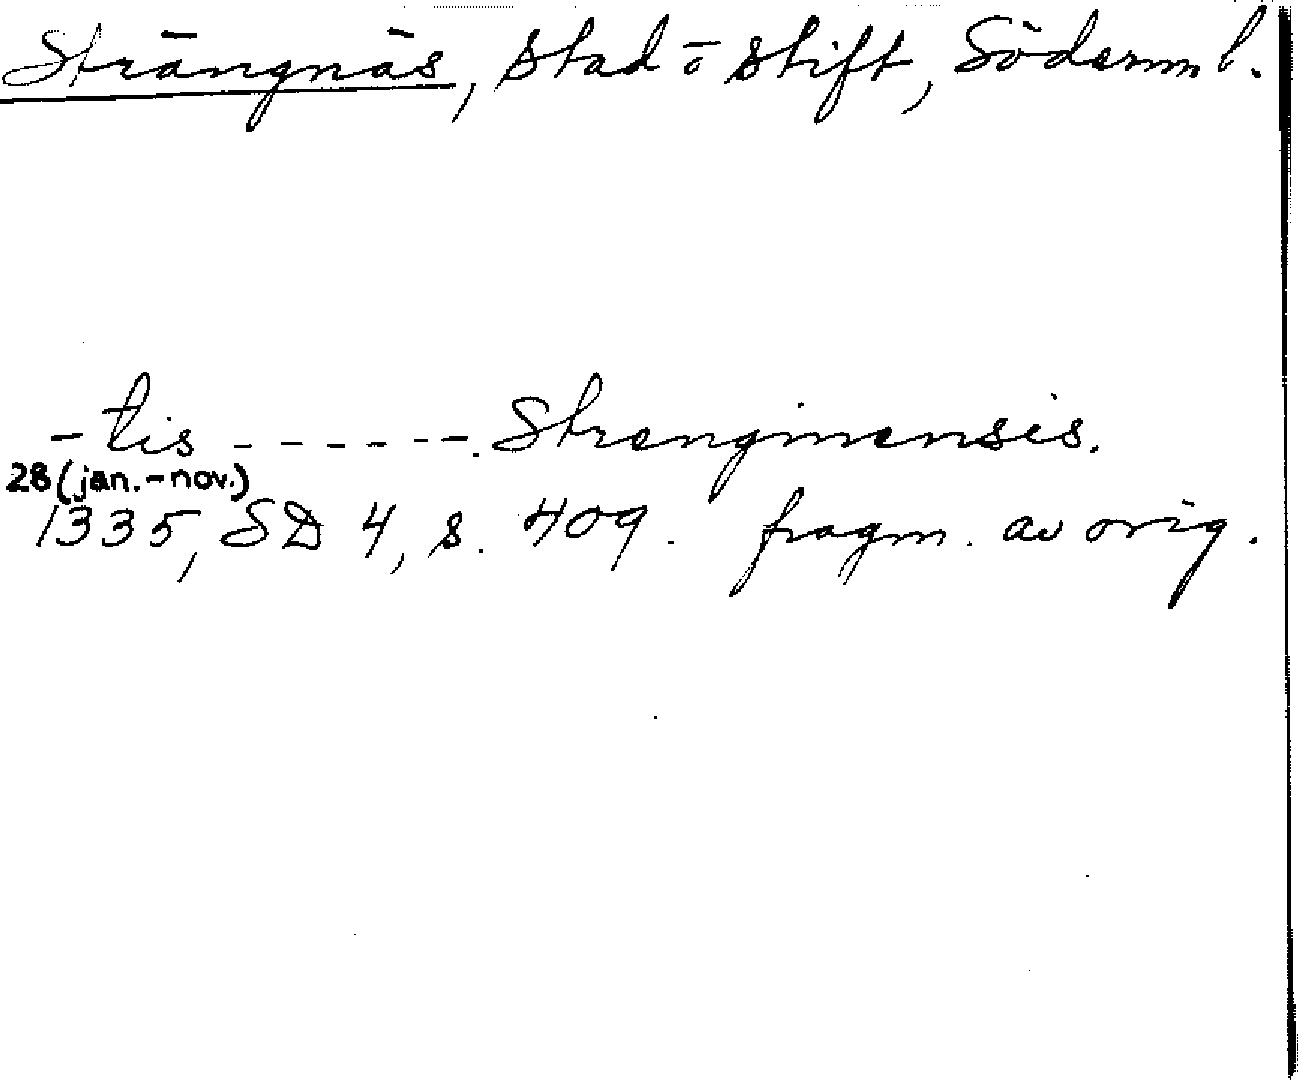 Strängnäs, stad o stift, Söderml.
- tis - - - - - -. Strenginensis.
28 (jan. - nov.)
1335, SD 4, s. 409. fragm. av orig.